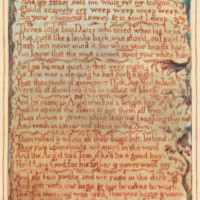 And my father sold me while yet my tongue
Could scarcely cry weep weep weep weep
So your chimneys I sweep & in soot I sleep.
Theres little Tom Dacre, who cried when his head
That curl'd like a lambs back, was shav'd, so I said,
Hush Tom never mind it, for when your head's bare,
You know that the soot cannot spoil your white hair
And so he was quiet, & that very night,
As Tom was a sleeping he had such a sight,
That thousands of sweepers
Were all of them lock'd up in coffins of black,
And by came an Angel who had a bright key,
And he open'd the coffins & set them all free.
Then down a green plain leaping laughing they run
And wash in a river and shine in the Sun.
Then naked & white, all their bags left behind,
They rise upon clouds, and sport in the wind.
And the Angel told Tom if he'd be a good boy,
He'd have God for his father & never want joy.
And so Tom awoke and we rose in the dark
And got with our bags & our brushes to work.